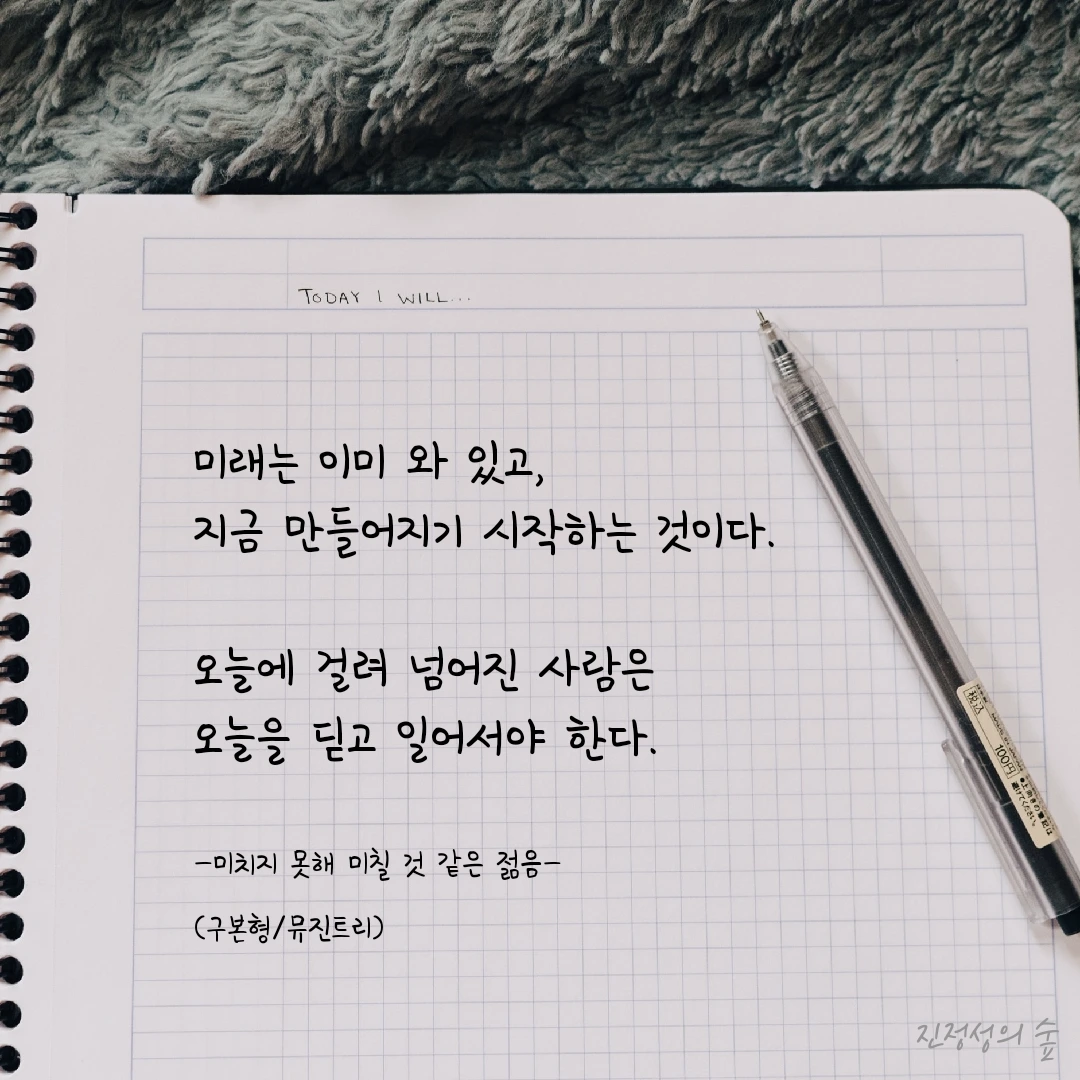 TODAY I WILL...
미래는 이미 와 있고,
지금 만들어지기 시작하는 것이다.
오늘에 걸려 넘어진 사람은
오늘을 딛고 일어서야 한다.
-미치지 못해 미칠 것 같은 젊음-
(구본형/뮤진트리)
税込
100円
●上向きの筆記は
避けてください。
진정성의 숲